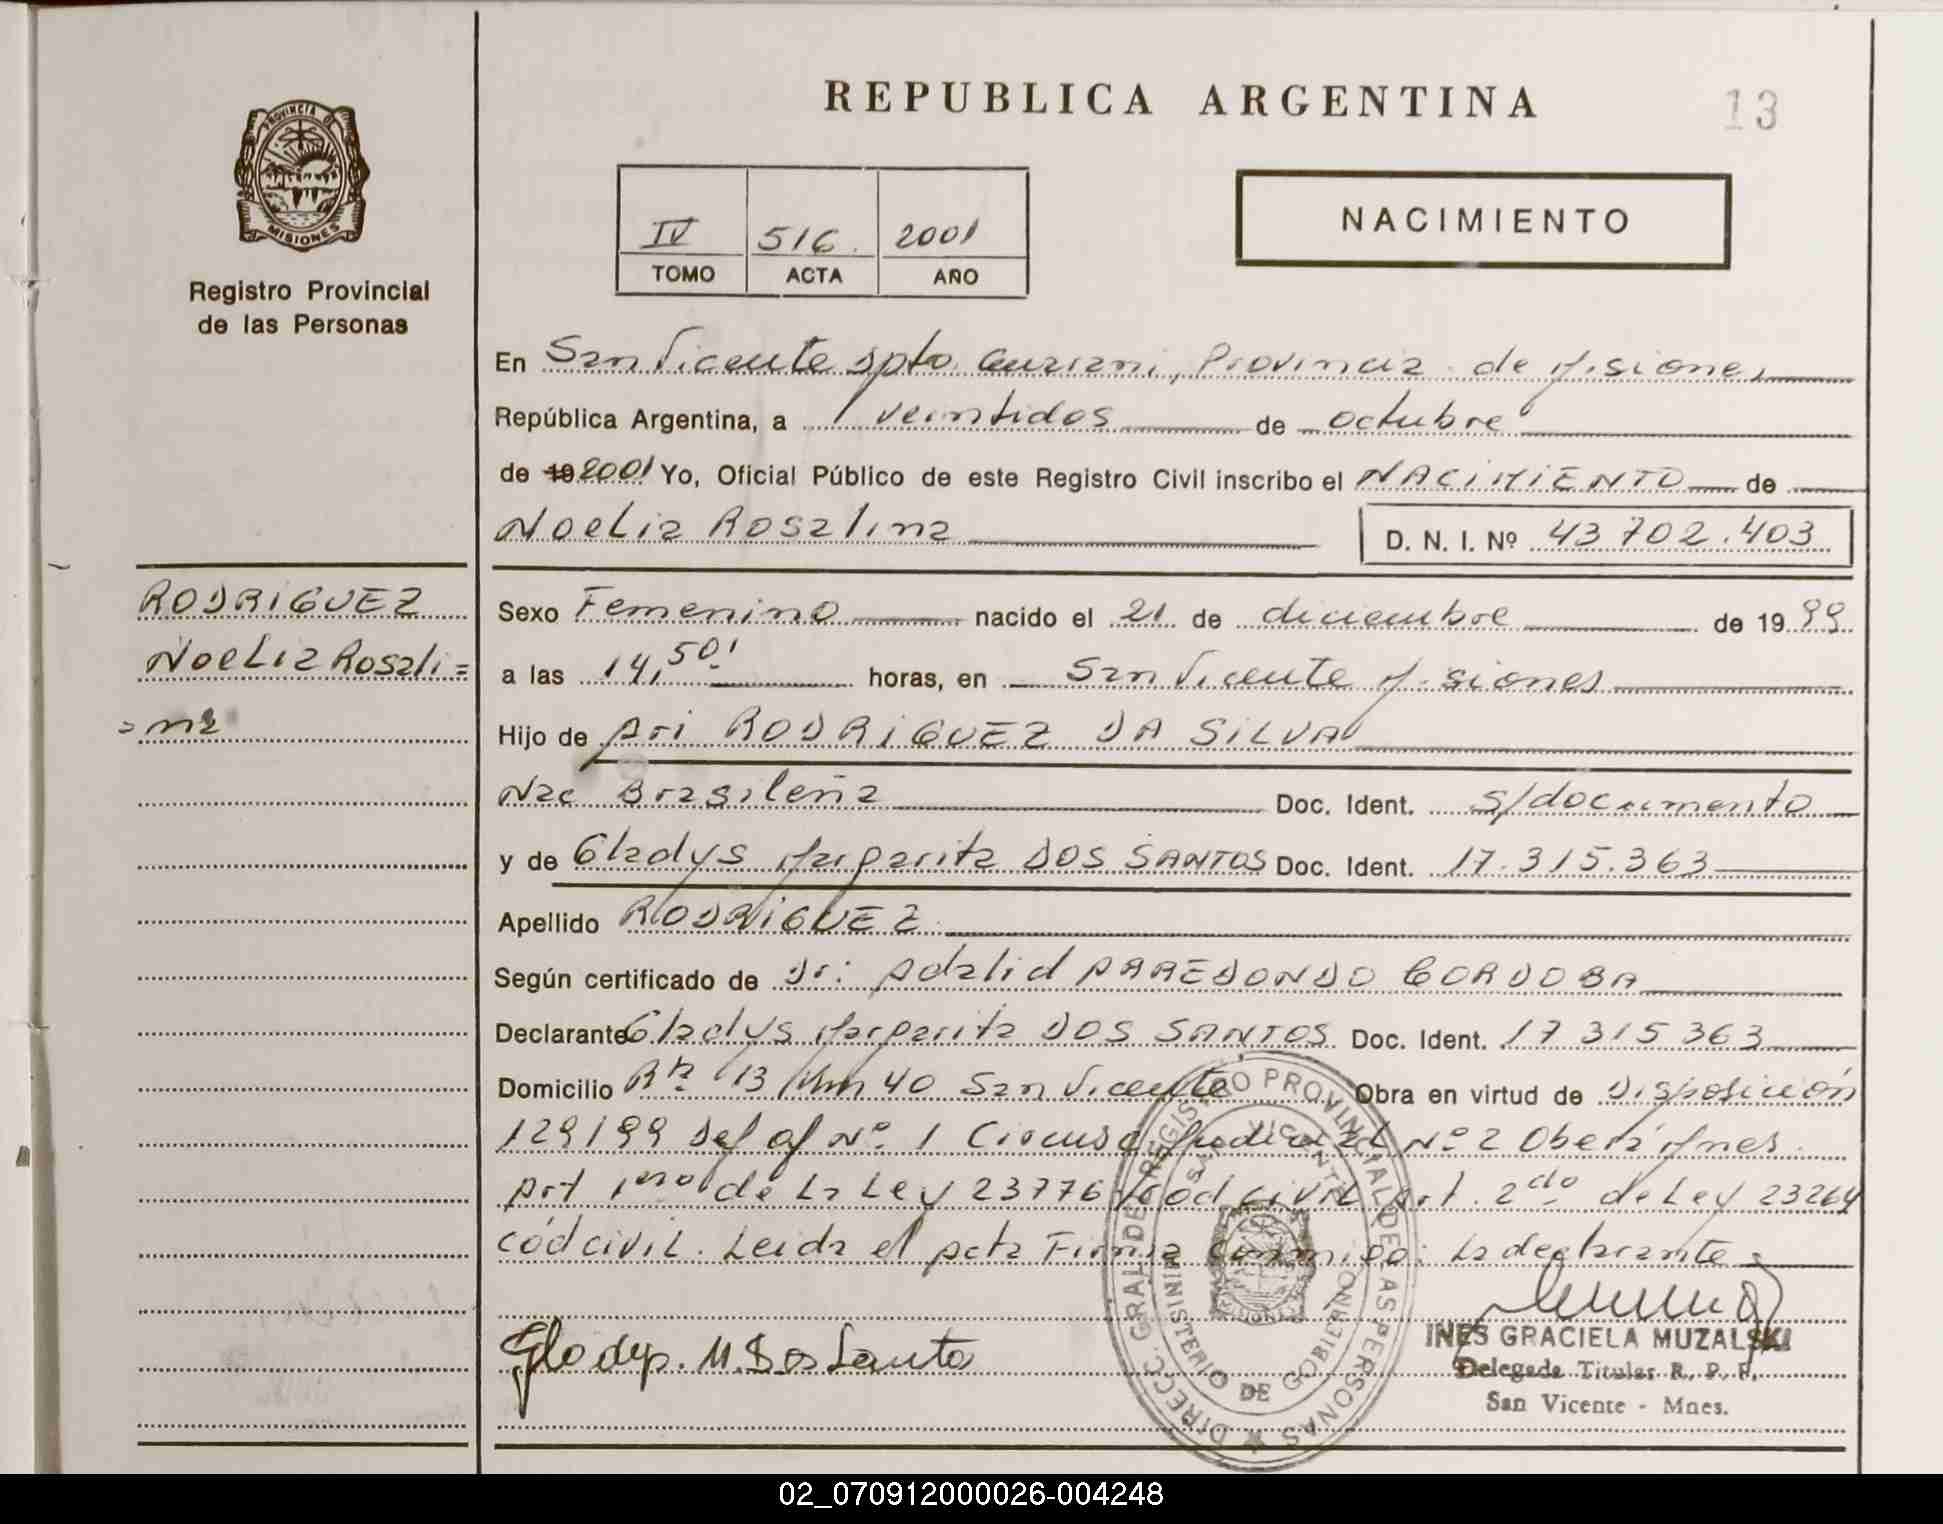 REPUBLICA ARGENTINA
13
PROVINCIA DE
MISIONES
Registro Provincial
de las Personas
IV 516. 2001
TOMO ACTA AÑO
NACIMIENTO
En San Vicente Dpto. Guarani, Provincia de Misiones
República Argentina, a veintidos de octubre
de 19 2001 Yo, Oficial Público de este Registro Civil inscribo el NACIMIENTO de
Noelia Rosalina
D. N. I. Nº 43 702.403
RODRIGUEZ
Noelia Rosali=
=na
Sexo Femenino nacido el 21 de diciembre de 1999
a las 14,50' horas, en San Vicente Misiones
Hijo de Ari RODRIGUEZ DA SILVA
Nac Brasileña Doc. Ident. s/documento
y de Gladys Margarita DOS SANTOS Doc. Ident. 17.315.363
Apellido RODRIGUEZ
Según certificado de Dr: Adalid ARREDONDO CORDOBA
Declarante Gladys Margarita DOS SANTOS Doc. Ident. 17 315 363
Domicilio Rta 13 Km 40 San Vicente Obra en virtud de Disposición
129/99 Def of Nº 1 Circuns Judicial Nº 2 Oberá Mnes.
Art 1ero de La Ley 23776 Cod civil Art. 2do de Ley 23264
cód civil. Leida el Acta Firma conmigo: La declarante
Gladys. M. Dos Santos
DIRECC. GRAL. DE REGISTRO PROVINCIAL DE LAS PERSONAS
SAN VICENTE
MINISTERIO DE GOBIERNO
INES GRACIELA MUZALSKI
Delegada Titular R. P. P.
San Vicente - Mnes.
02_070912000026-004248